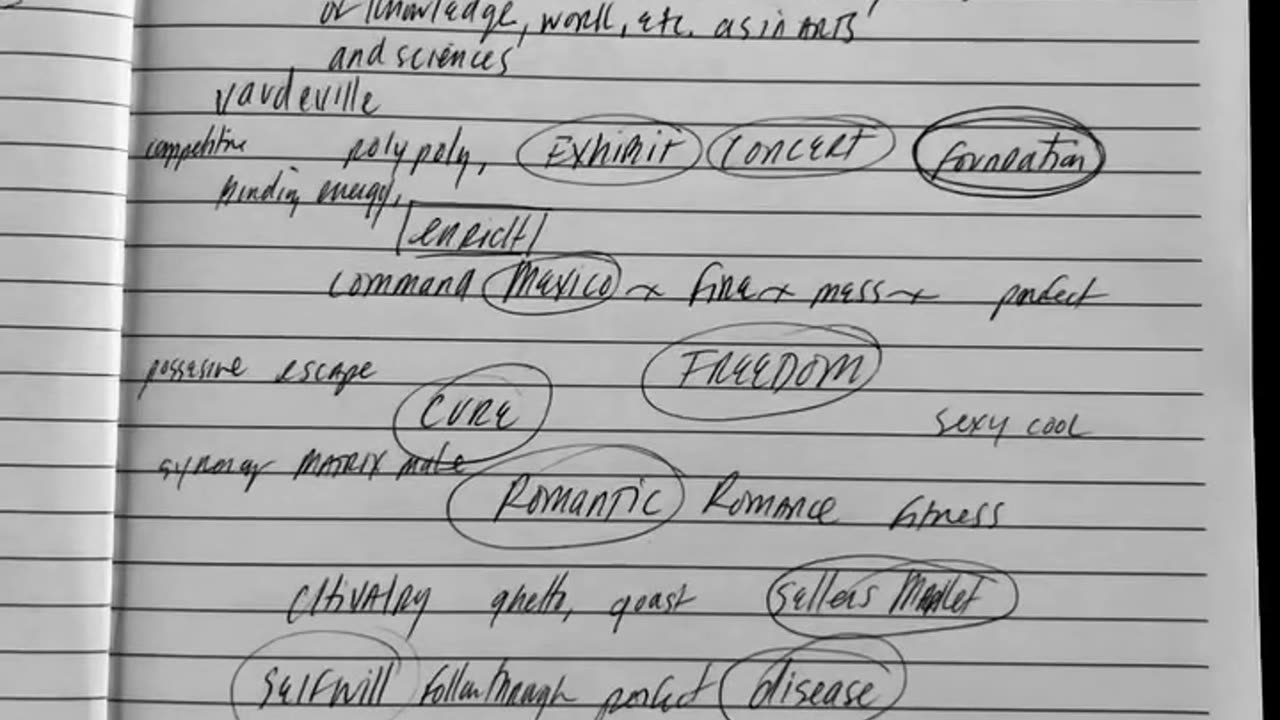 of knowledge, work, etc. as in ARTS
and sciences
vaudeville
competitive polypoly, EXHIBIT CONCERT Foundation
binding energy,
enrich
command Mexico fire mass perfect
possesive escape FREEDOM
CURE sexy cool
synergy MATRIX male
ROMANTIC ROMANCE fitness
CHIVALRY ghetto, quasi sellers Market
SELFWILL followthrough perfect disease